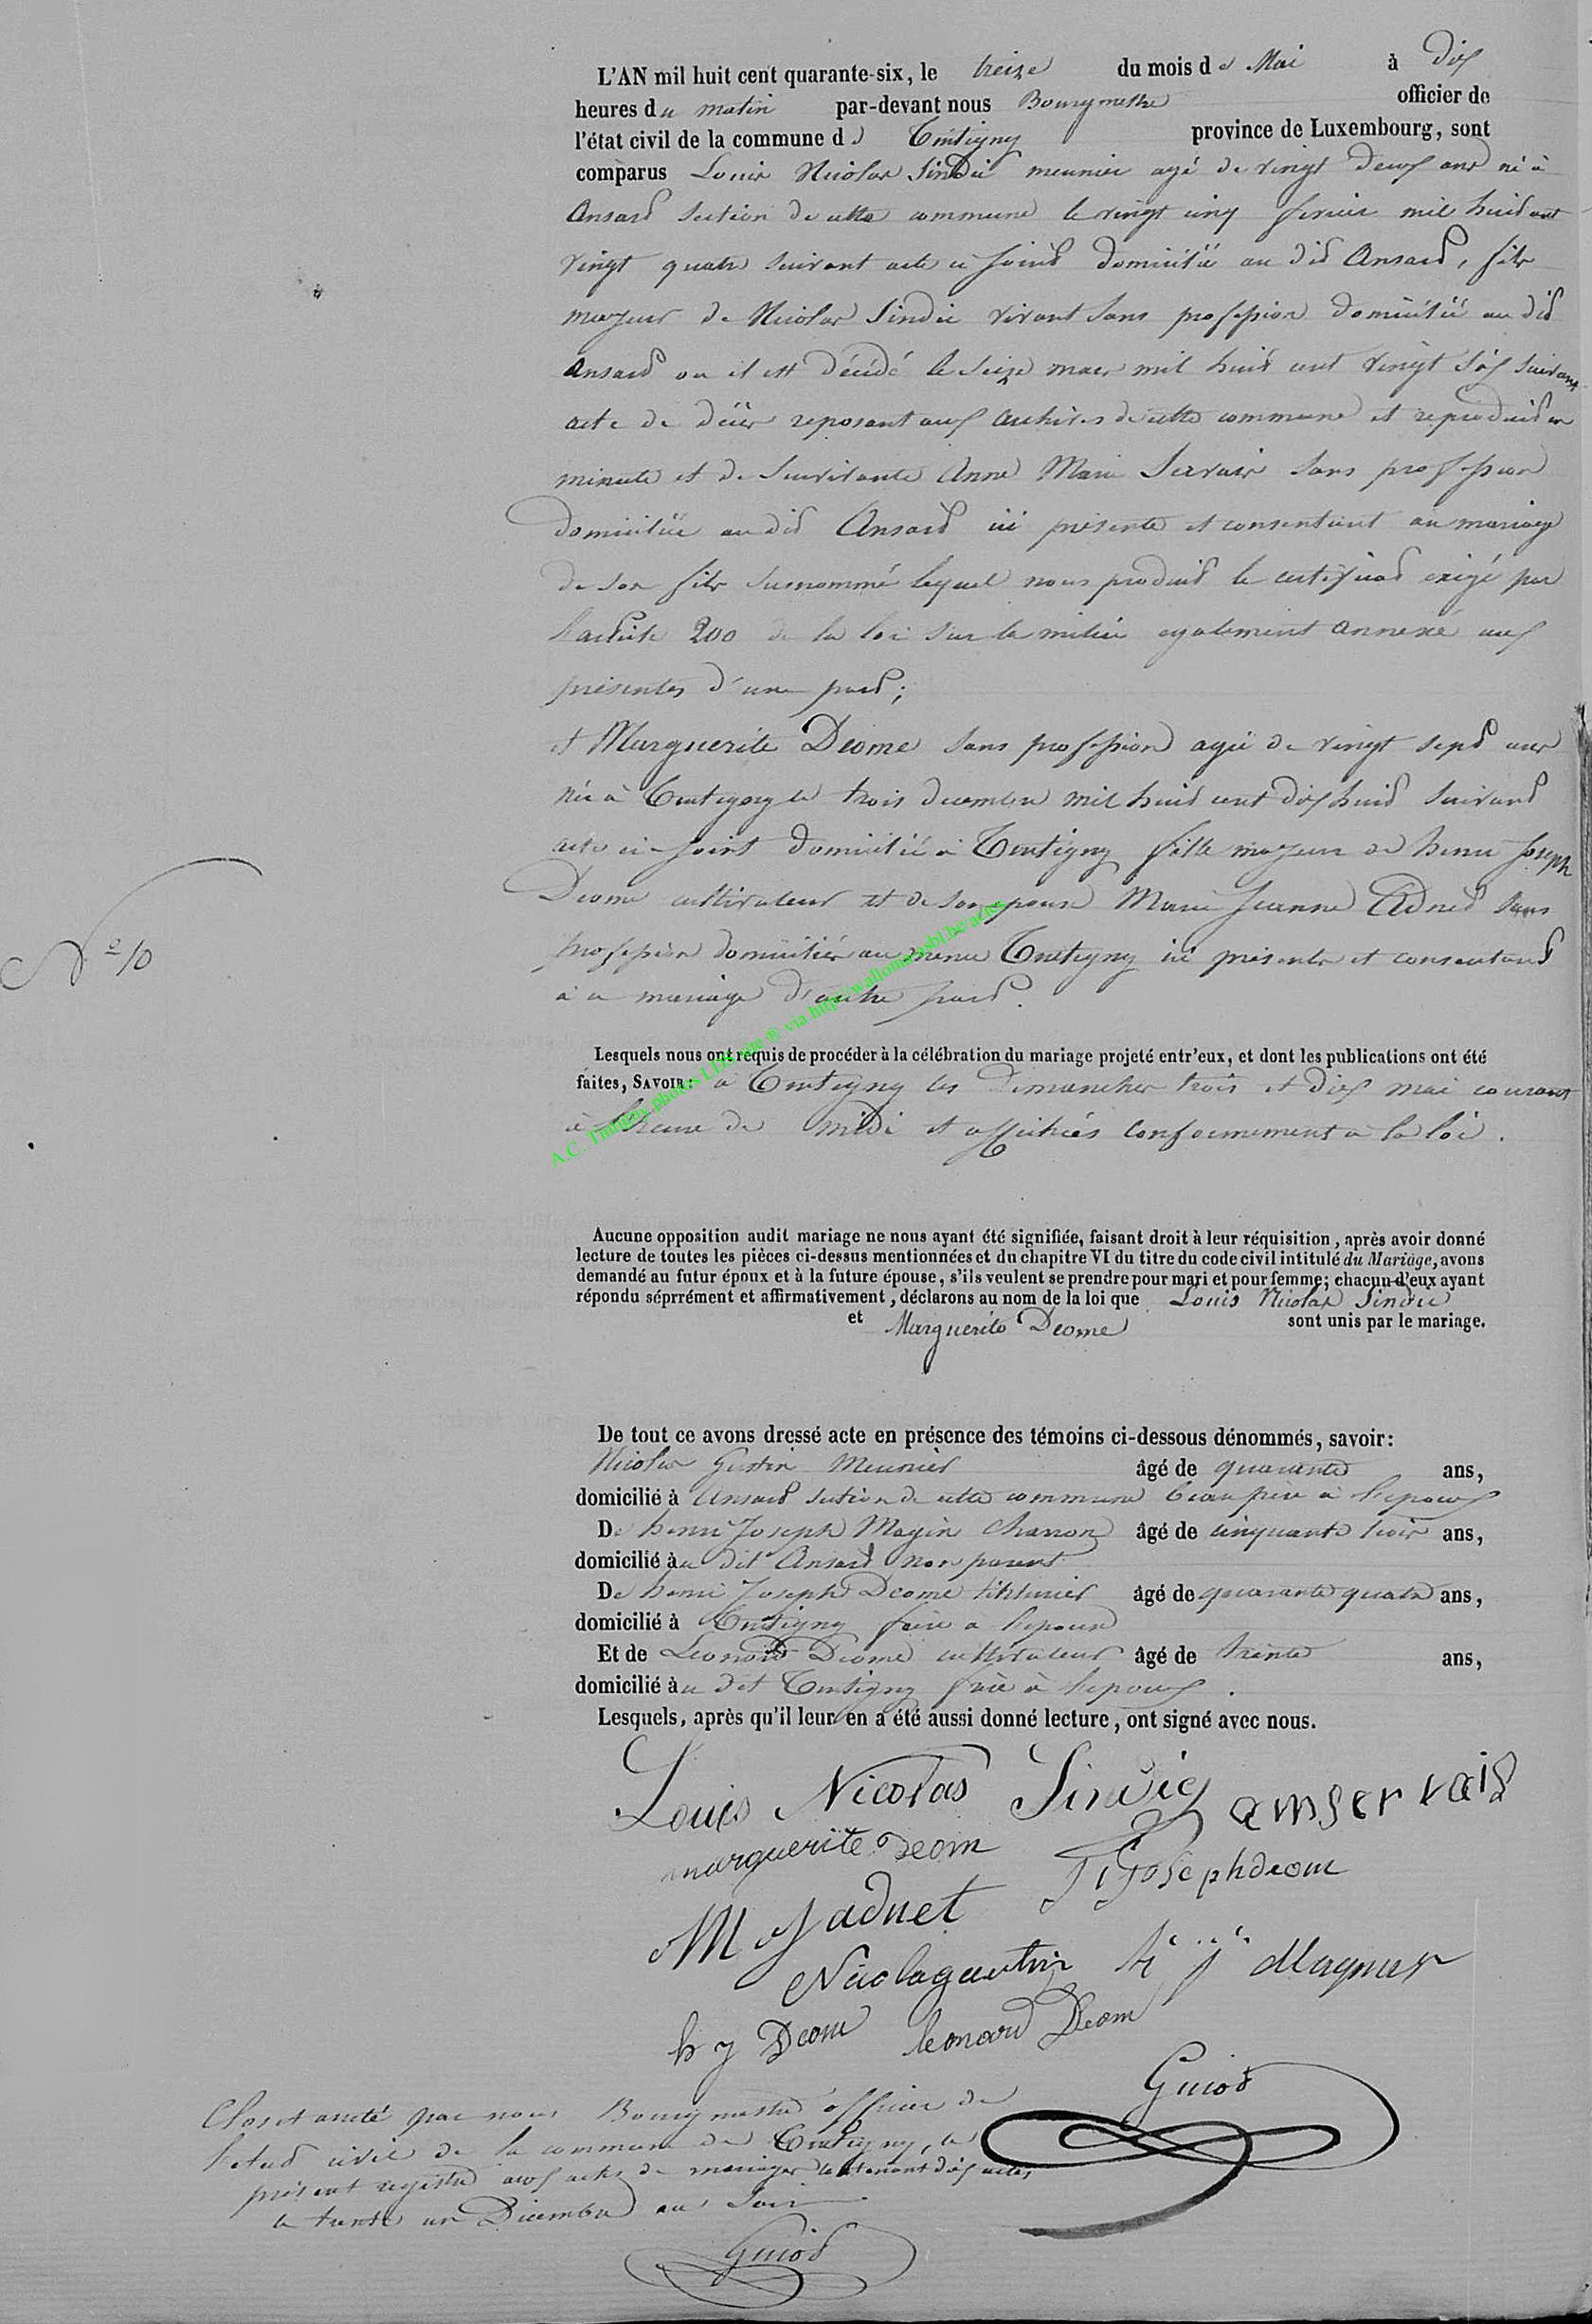 L'AN mil huit cent quarante-six, le treize du mois de Mai à dix
heures du matin par-devant nous Bourgmestre officier de
l'état civil de la commune de Tintigny province de Luxembourg, sont
comparus Louis Nicolas Sindic meunier agé de vingt deux ans né à
Ansart section de cette commune le vingt cinq fevrier mil huit cent
vingt quatre suivant acte ci joint domicilié au dit Ansart, fils
majeur de Nicolas Sindic vivant sans profession domicilié au dit
Ansart ou il est décédé le seize mars mil huit cent vingt six suivant
acte de décès reposant aux archives de cette commune et reproduit en
minute et de survivante Anne Marie Servais sans profession
domiciliée au dit Ansart ici présente et consentant au mariage
de son fils surnommé lequel nous produit le certificat exigé par
l'article 200 de la loi sur la milice egalement annexé aux
présentes d'une part;
et Marguerite Deome sans profession agée de vingt sept ans
née à Tintigny le trois decembre mil huit cent dix huit suivant
acte ci-joint domiciliée à Tintigny fille majeure de henri Joseph
Deome cultivateur et de son epouse Marie Jeanne Adnet sans
profession domiciliés au meme Tintigny ici présents et consentant
à ce mariage d'autre part.
N° 10
Lesquels nous ont requis de procéder à la célébration du mariage projeté entr'eux, et dont les publications ont été
faites, SAVOIR: à Tintigny les Dimanches trois et dix mai courant
à l'heure de midi et affichées conformement a la loi.
A.C. Tintigny photos LDS via http://wallonia.asbl.be/actes
Aucune opposition audit mariage ne nous ayant été signifiée, faisant droit à leur réquisition, après avoir donné
lecture de toutes les pièces ci-dessus mentionnées et du chapitre VI du titre du code civil intitulé du Mariage, avons
demandé au futur époux et à la future épouse, s'ils veulent se prendre pour mari et pour femme; chacun d'eux ayant
répondu séprrément et affirmativement, déclarons au nom de la loi que Louis Nicolas Sindic
et Marguerite Deome sont unis par le mariage.
De tout ce avons dressé acte en présence des témoins ci-dessous dénommés, savoir:
Nicolas Gustin Meunier âgé de quarante ans,
domicilié à Ansart section de cette commune beau pere a l'epoux
De henri Joseph Magin charron âgé de cinquante trois ans,
domicilié au dit Ansart non parent
De henri Joseph Deome âgé de quarante quatre ans,
domicilié à Tintigny frère a l'epouse
Et de Leonard Deome cultivateur âgé de trente ans,
domicilié au dit Tintigny frère à l'epoux.
Lesquels, après qu'il leur en a été aussi donné lecture, ont signé avec nous.
Louis Nicolas Sindic amservais
marguerite deom h Joseph deom
M J adnet
Nicolas gustin h j Magin
h j Deom leonard Deom
Guiot
Clos et arrêté par nous Bourgmestre officier de
l'etat civil de la commune de Tintigny, le
présent registre aux actes de mariages contenant dix actes
le trente un Decembre au soir
Guiot